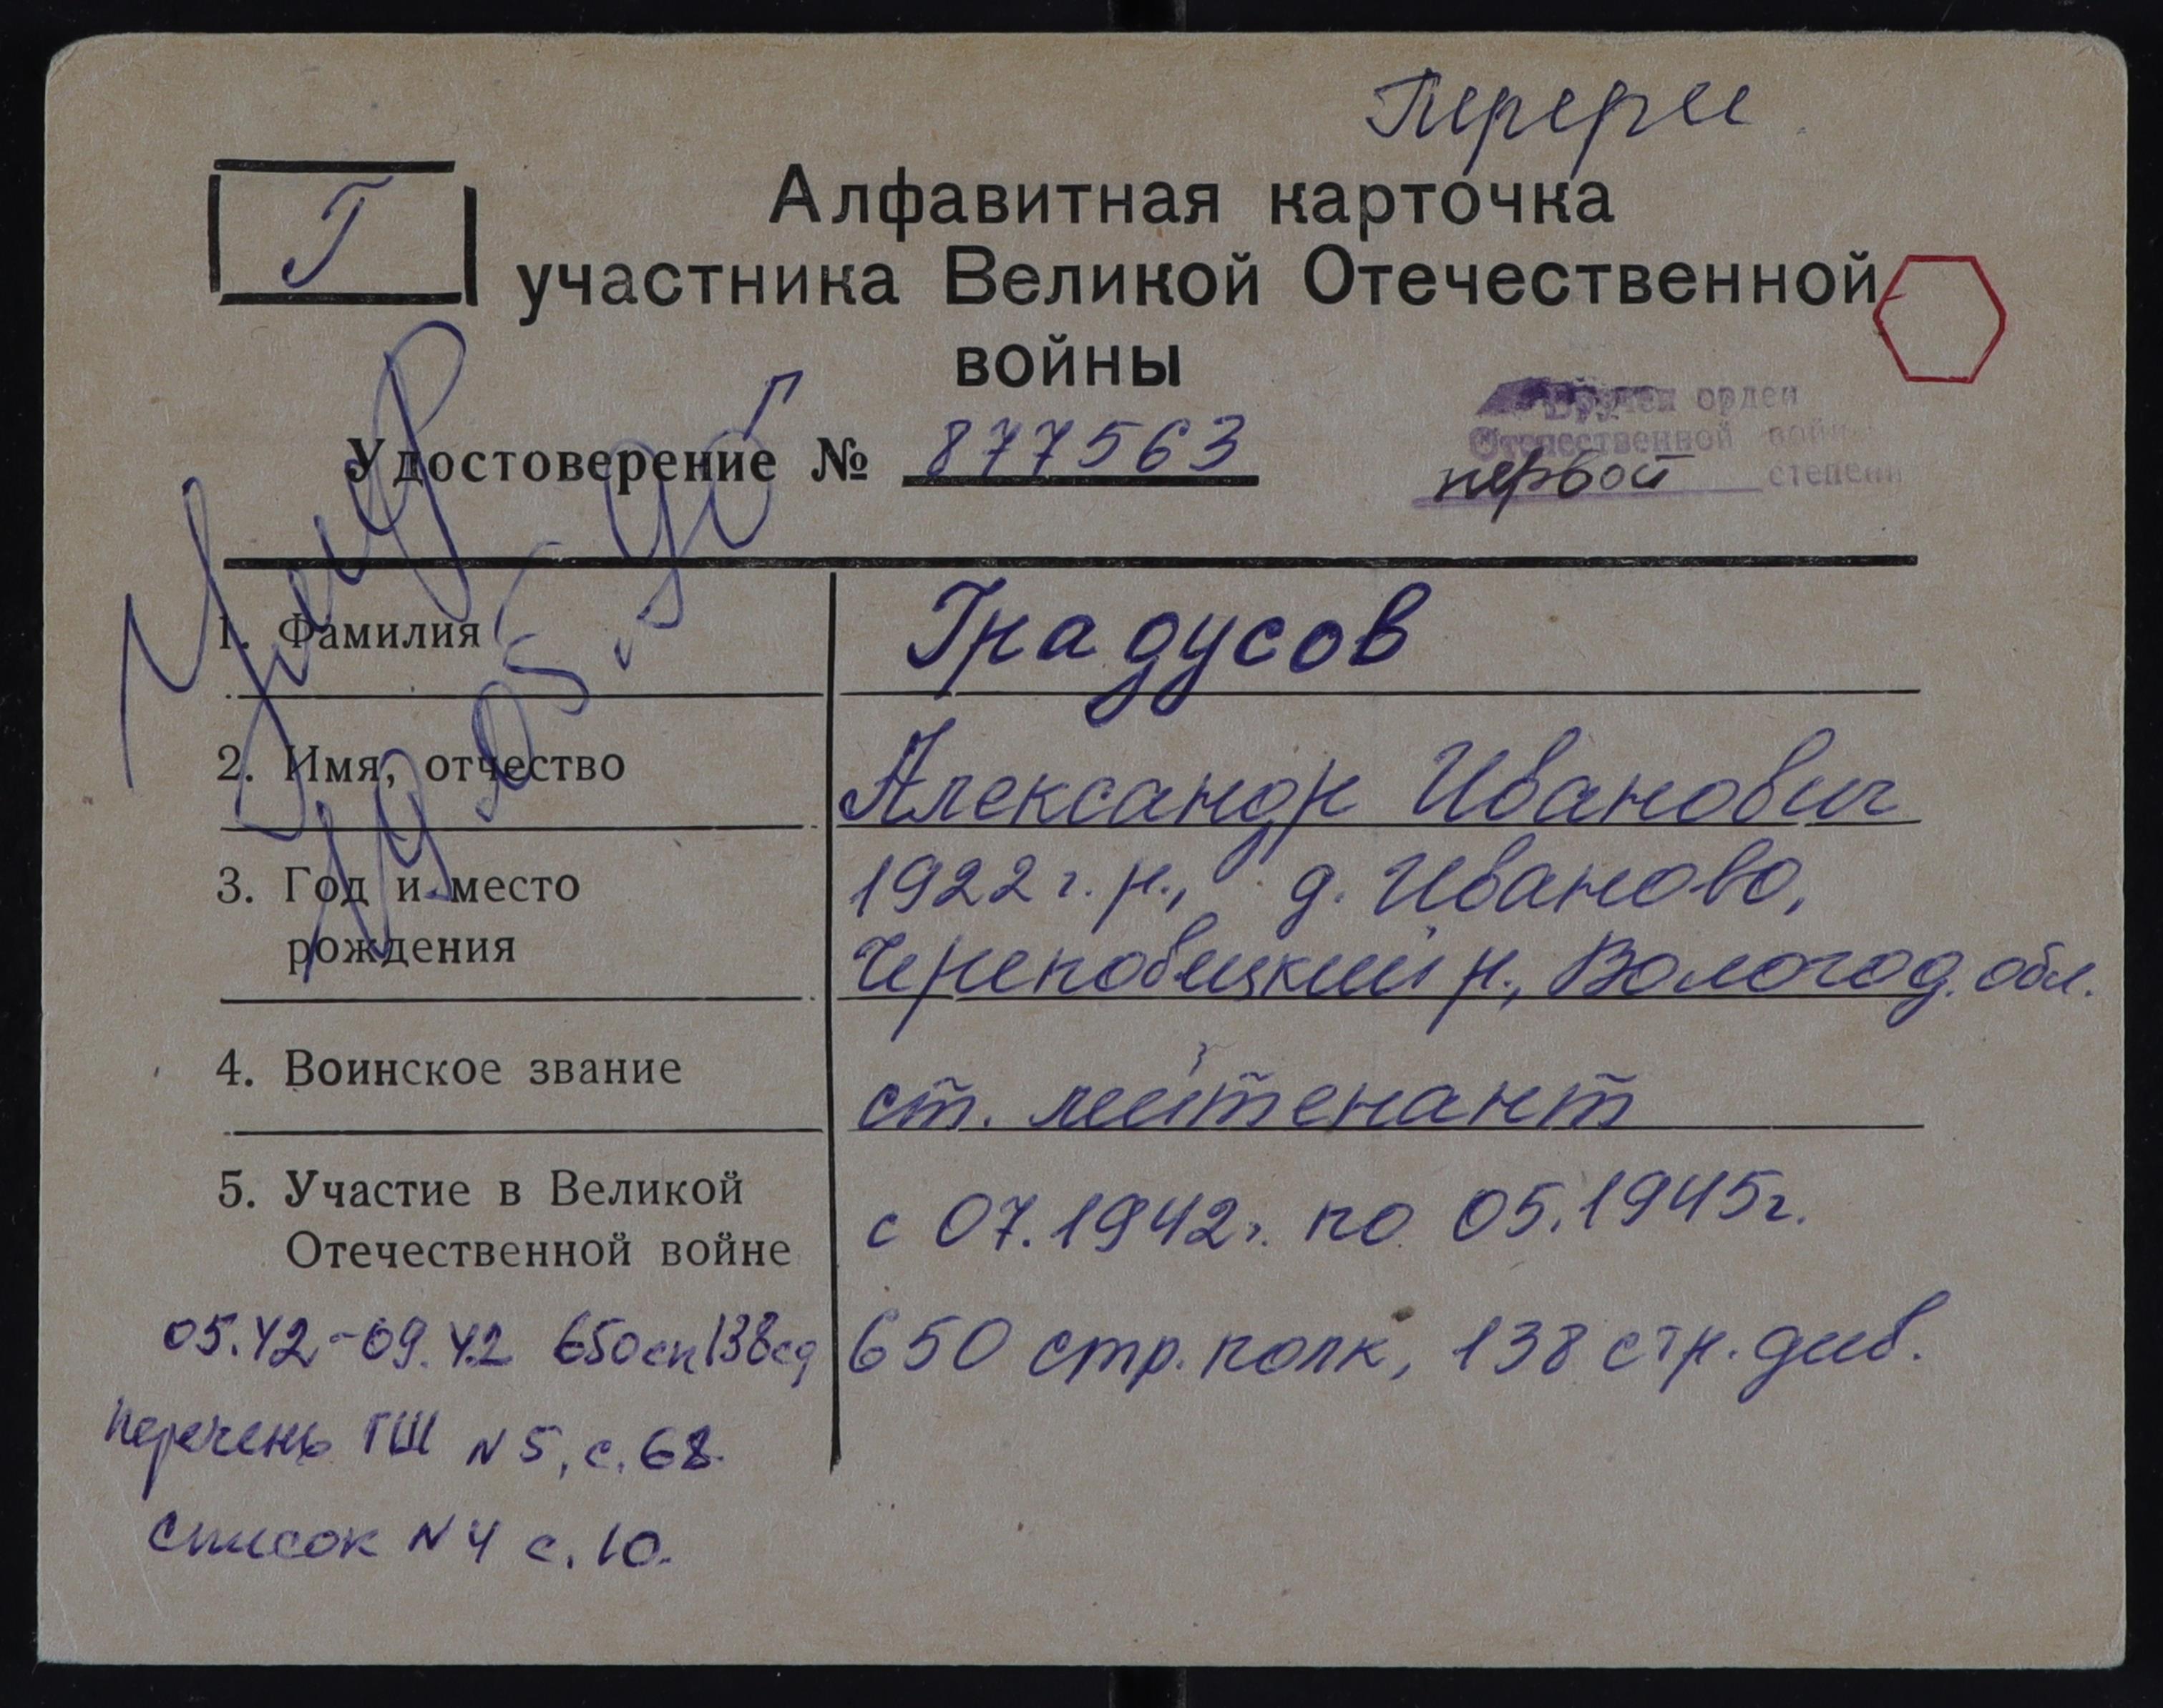 Г
Алфавитная карточка
участника Великой Отечественной
войны
Вручен орден
Отечественной войны
первой степени
Удостоверение № 877563
Умер
19.05.90г
1. Фамилия Градусов
2. Имя, отчество Александр Иванович
3. Год и место рождения 1922 г.р., д. Иваново,
Череповецкий р., Вологод. обл.
4. Воинское звание ст. лейтенант
5. Участие в Великой
Отечественной войне с 07.1942г. по 05.1945г.
650 стр. полк, 138 стр. див.
05.42-09.42 650сп 138сд
перечень ГШ N5, с. 68.
список N4 с. 10.